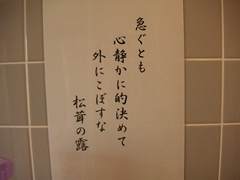 急ぐとも
心静かに的決めて
外にこぼすな
松茸の露